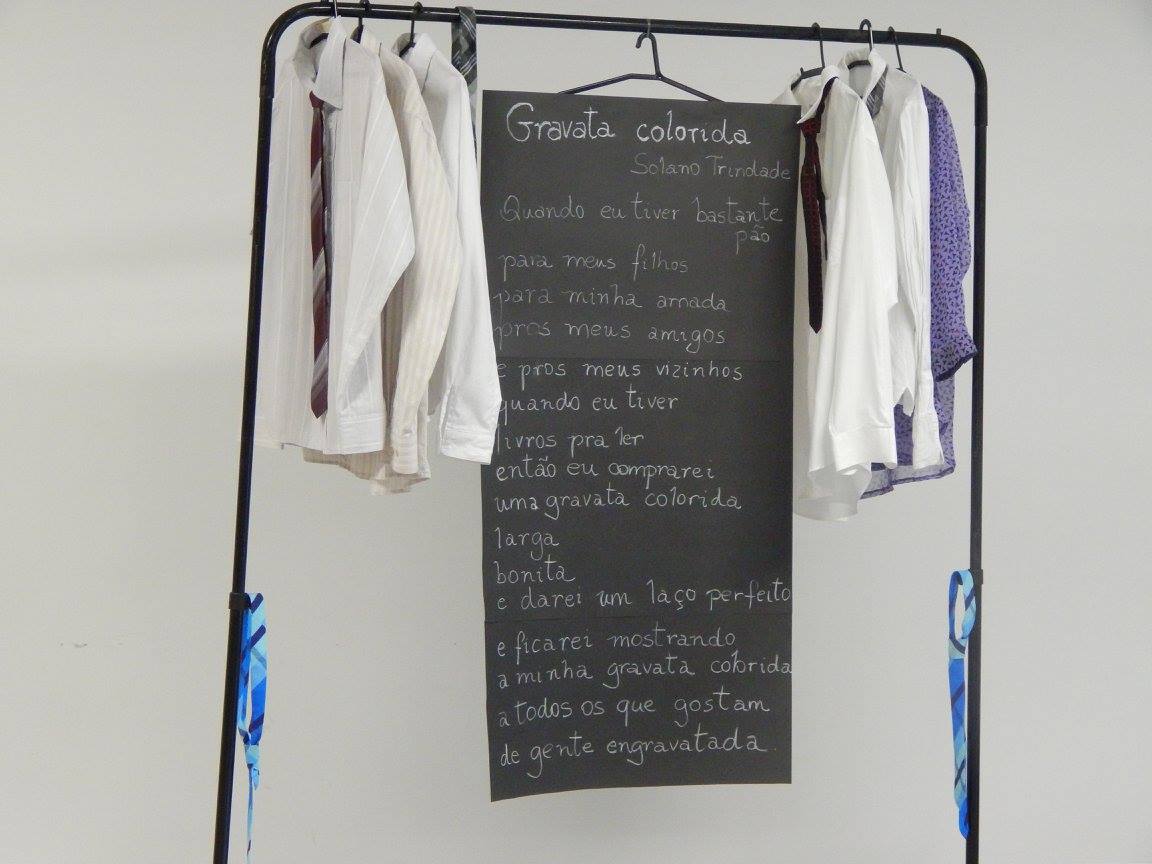 Gravata colorida
Solano Trindade
Quando eu tiver bastante
pão
para meus filhos
para minha amada
pros meus amigos
e pros meus vizinhos
quando eu tiver
livros pra ler
então eu comprarei
uma gravata colorida
larga
bonita
e darei um laço perfeito
e ficarei mostrando
a minha gravata colorida
a todos os que gostam
de gente engravatada.